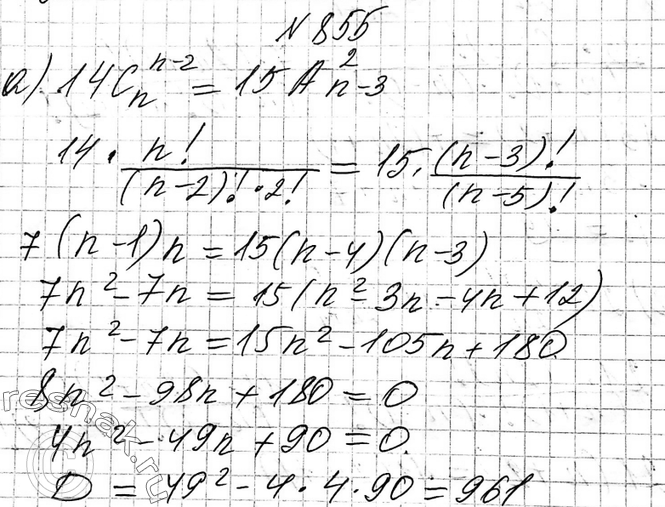 № 855
а) 14C_n^{n-2} = 15A_{n-3}^2
14 · n!/((n-2)! · 2!) = 15 · (n-3)!/(n-5)!
7(n-1)n = 15(n-4)(n-3)
7n² - 7n = 15(n² - 3n - 4n + 12)
7n² - 7n = 15n² - 105n + 180
8n² - 98n + 180 = 0
4n² - 49n + 90 = 0
D = 49² - 4 · 4 · 90 = 961